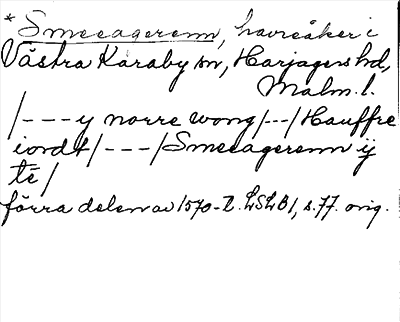 *Smeeagerenn, havreåker i
Västra Karaby sn, Harjagers hd,
Malm. l.
/---y norre wong/---/Hauffre
iordt/---/Smeeagerenn ij
té/
förra delen av 1570-t. LSLB1, s. 77. orig.